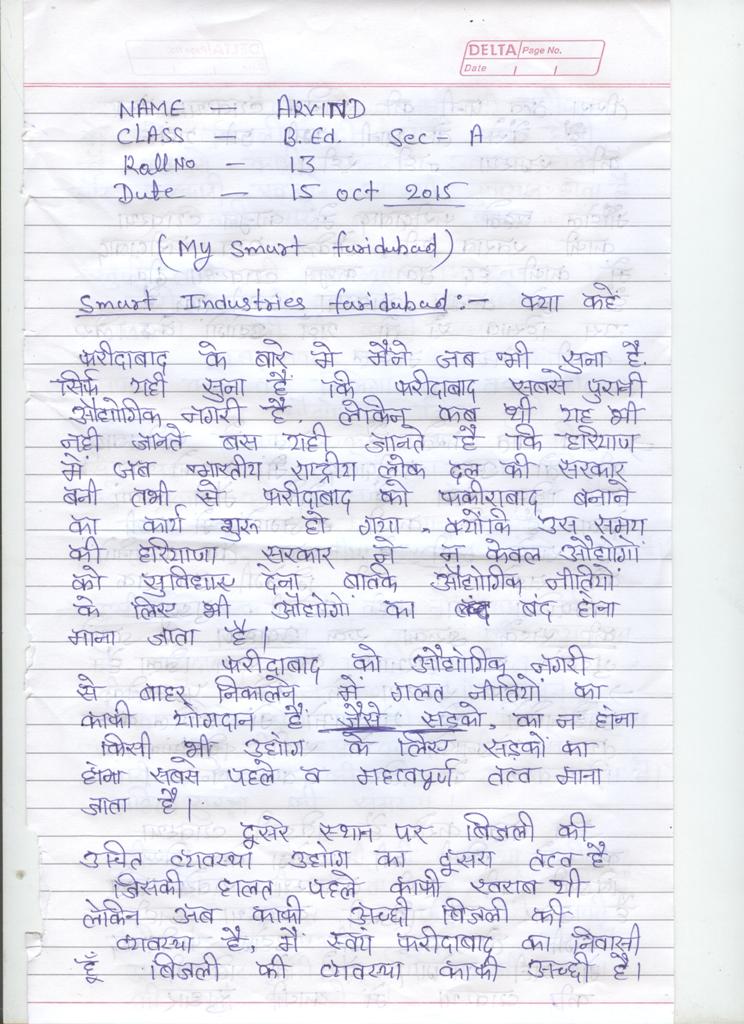 DELTA Page No.
Date
NAME — ARVIND
CLASS — B.Ed. Sec - A
Roll No - 13
Date — 15 oct 2015
(My Smart faridabad)
Smart Industries faridabad :- क्या कहें
फरीदाबाद के बारे मे मैंने जब भी सुना है.
सिर्फ यही सुना है कि फरीदाबाद सबसे पुरानी
औद्योगिक नगरी है. लेकिन कब थी यह भी
नही जानते बस यही जानते है कि हरियाणा
में जब भारतीय राष्ट्रीय लोक दल की सरकार
बनी तभी से फरीदाबाद को फकीराबाद बनाने
का कार्य शुरू हो गया. क्योंकि उस समय
की हरियाणा सरकार ने न केवल औद्योगों
को सुविधाए देना बल्कि औद्योगिक नीतियों
के लिए भी औद्योगों का बंद होना
माना जाता है।
फरीदाबाद को औद्योगिक नगरी
से बाहर निकालने में गलत नीतियों का
काफी योगदान हैं जैसे सड़को, का न होना
किसी भी उद्योग के लिए सड़कों का
होना सबसे पहले व महत्वपूर्ण तत्व माना
जाता है।
दूसरे स्थान पर बिजली की
उचित व्यवस्था उद्योग का दूसरा तत्व है
जिसकी हालत पहले काफी खराब थी
लेकिन अब काफी अच्छी बिजली की
व्यवस्था है, मैं स्वयं फरीदाबाद का निवासी
हूँ बिजली की व्यवस्था काफी अच्छी है।